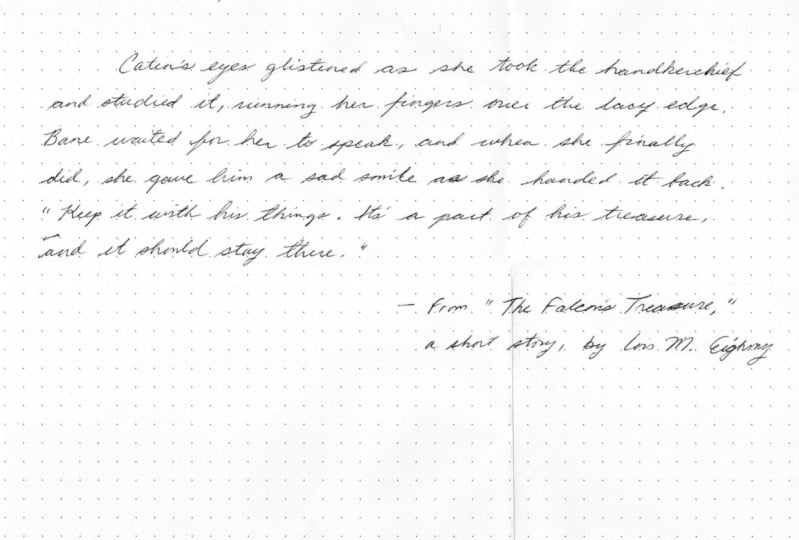 Caten's eyes glistened as she took the handkerchief
and studied it, running her fingers over the lacy edge.
Bane waited for her to speak, and when she finally
did, she gave him a sad smile as she handed it back.
"Keep it with his things. It's a part of his treasure,
and it should stay there."
— From "The Falcon's Treasure,"
a short story, by Lois M.